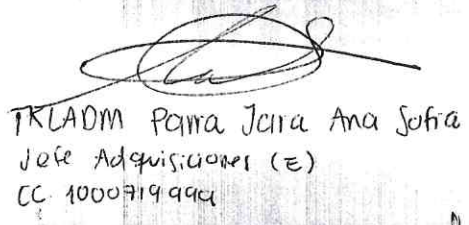 TKLADM Parra Jara Ana Sofia
Jefe Adquisiciones (E)
CC. 1000719999